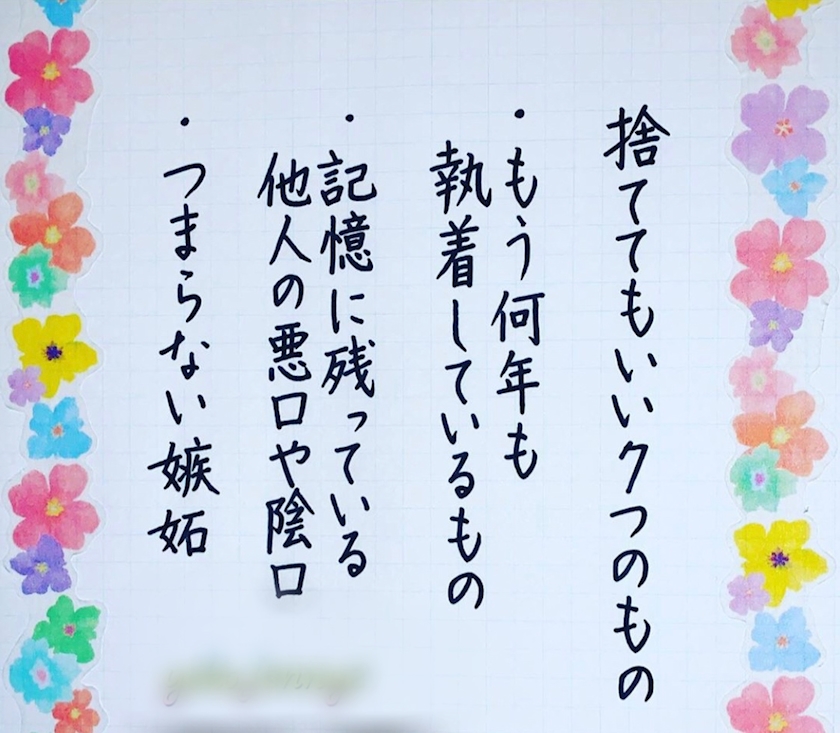 捨ててもいい7つのもの
・もう何年も
執着しているもの
・記憶に残っている
他人の悪口や陰口
・つまらない嫉妬